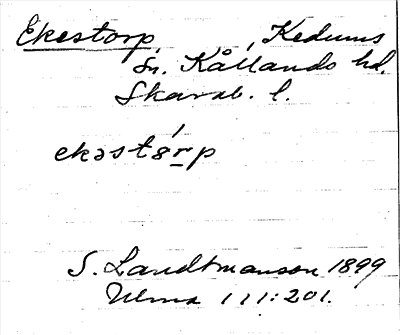 Ekestorp, Kedums
sn. Kållands hd.
Skarab. l.
ekəstórp
S. Landtmanson 1899
Ulma 111:201.